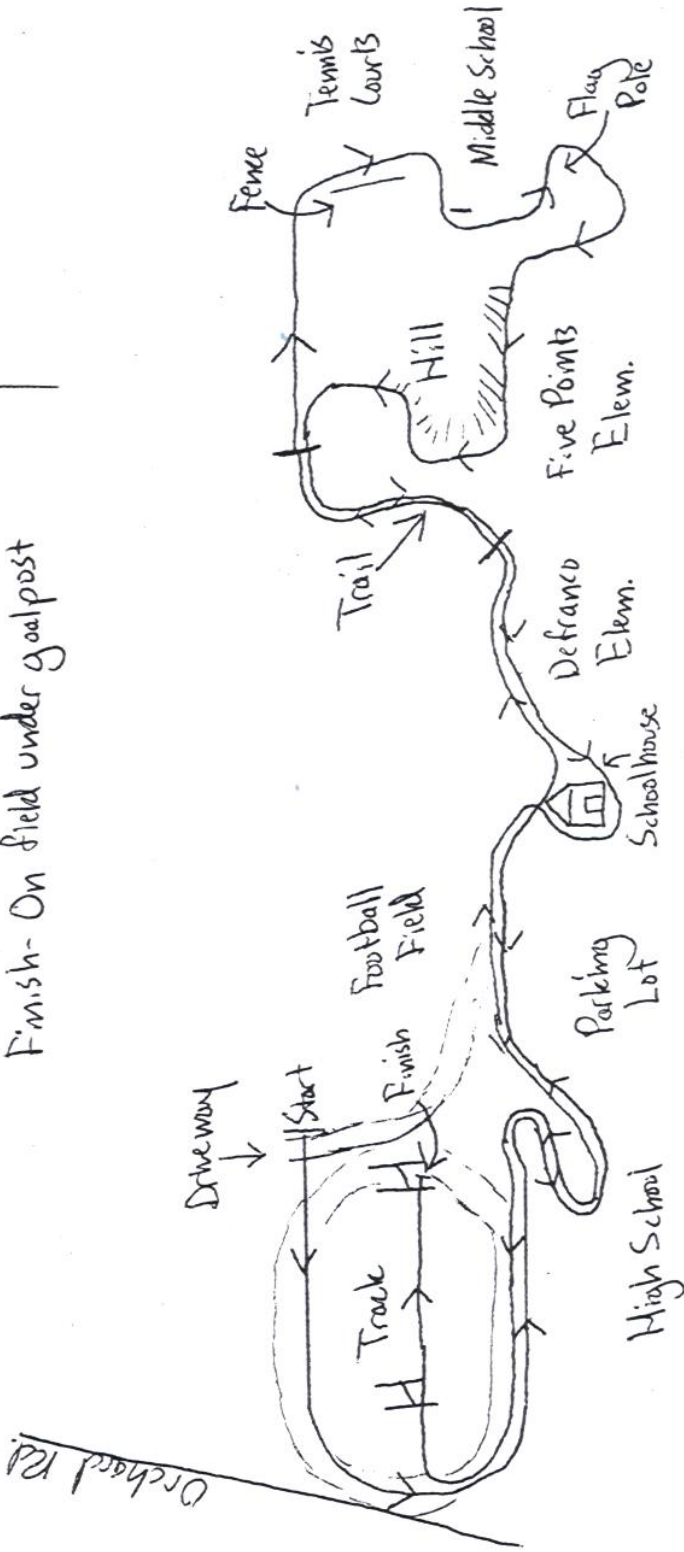 Finish- On field under goalpost
Orchard Rd.
Driveway
Start
Finish
Track
Football
Field
High School
Parking
Lot
Schoolhouse
Defranco
Elem.
Trail
Five Points
Elem.
Hill
Fence
Tennis
Courts
Middle School
Flag
Pole